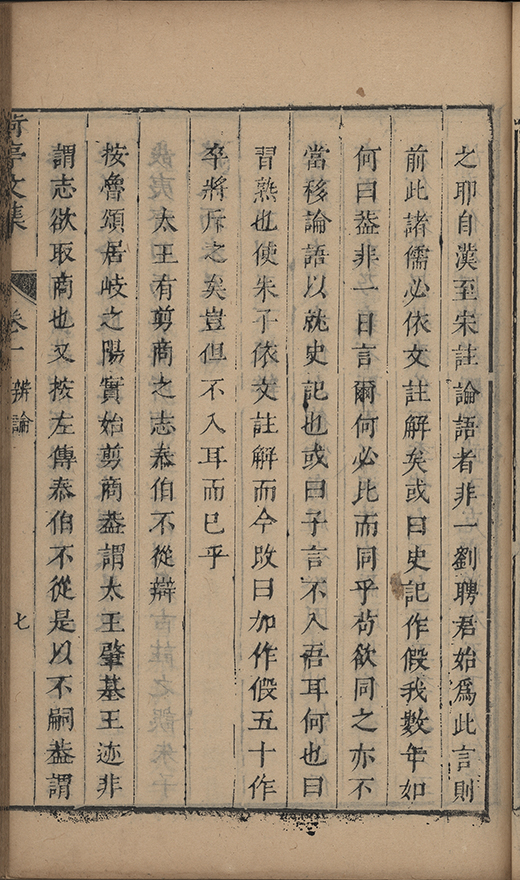 之耶自漢至宋註論語者非一劉聘君始爲此言則
前此諸儒必依文註解矣或曰史記作假我數年如
何曰葢非一日言爾何必比而同乎茍欲同之亦不
當移論語以就史記也或曰子言不入吾耳何也曰
習熟也使朱子依文註解而今改曰加作假五十作
卒將斥之矣豈但不入耳而已乎
太王有剪商之志泰伯不從辯
按魯頌居岐之陽實始剪商葢謂太王肇基王迹非
謂志欲取商也又按左傳泰伯不從是以不嗣葢謂
文集
卷一
辨論
七